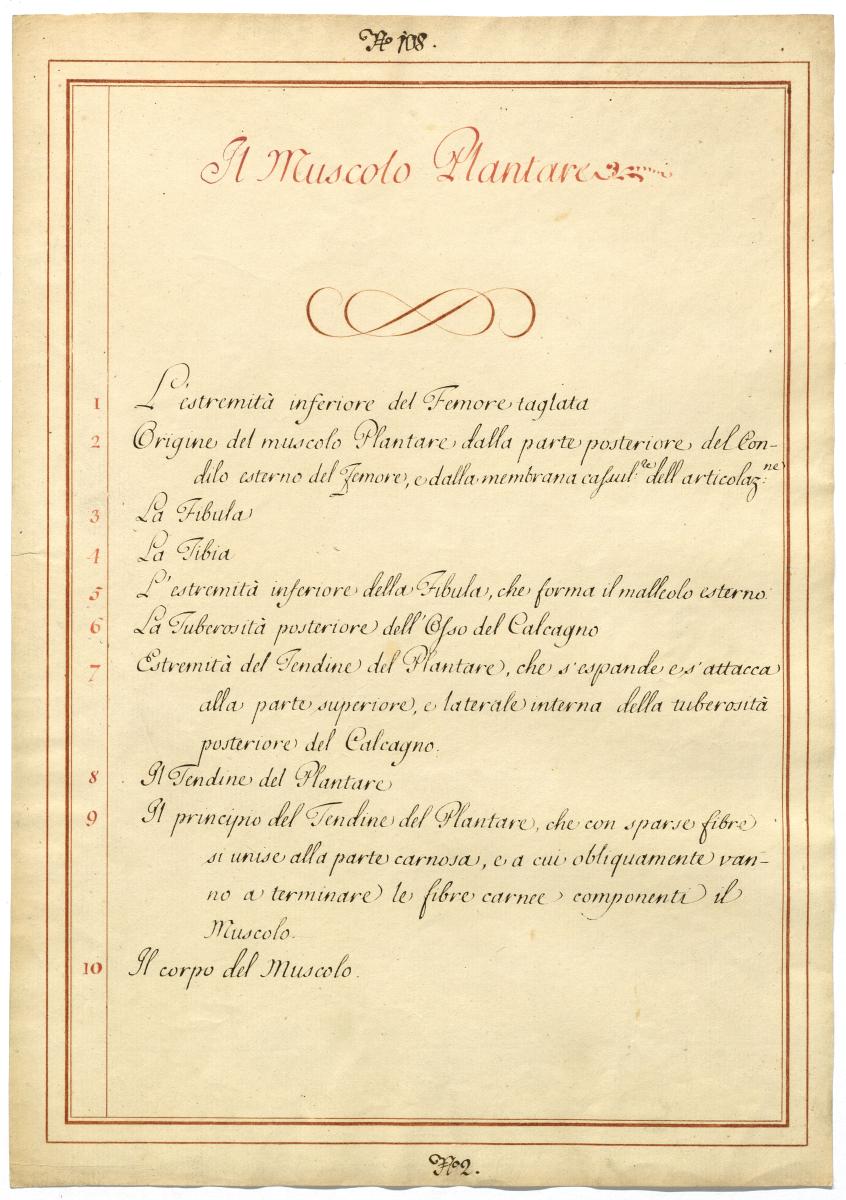 No 108.
Il Muscolo Plantare
1 L'estremità inferiore del Femore taglata
2 Origine del muscolo Plantare dalla parte posteriore del Con-
dilo esterno del Femore, e dalla membrana caſsul:re dell'articolaz:ne
3 La Fibula
4 La Tibia
5 L'estremità inferiore della Fibula, che forma il malleolo esterno.
6 La Tuberosità posteriore dell'Oſso del Calcagno
7 Estremità del Tendine del Plantare, che s'espande e s'attacca
alla parte superiore, e laterale interna della tuberosità
posteriore del Calcagno.
8 Il Tendine del Plantare
9 Il principio del Tendine del Plantare, che con sparse fibre
si unise alla parte carnosa, e a cui obliquamente van-
no a terminare le fibre carnee componenti il
Muscolo.
10 Il corpo del Muscolo.
No 2.